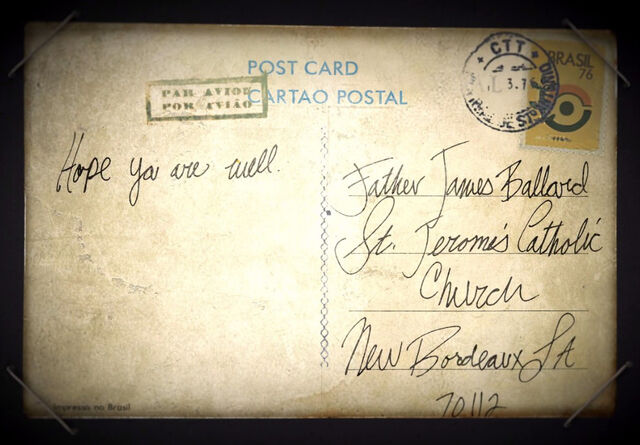 POST CARD
CARTAO POSTAL
PAR AVION
POR AVIÃO
CTT
BRASIL
76
Hope you are well.
Father James Ballard
St. Jerome's Catholic
Church
New Bordeaux LA
70112
Impresso no Brasil